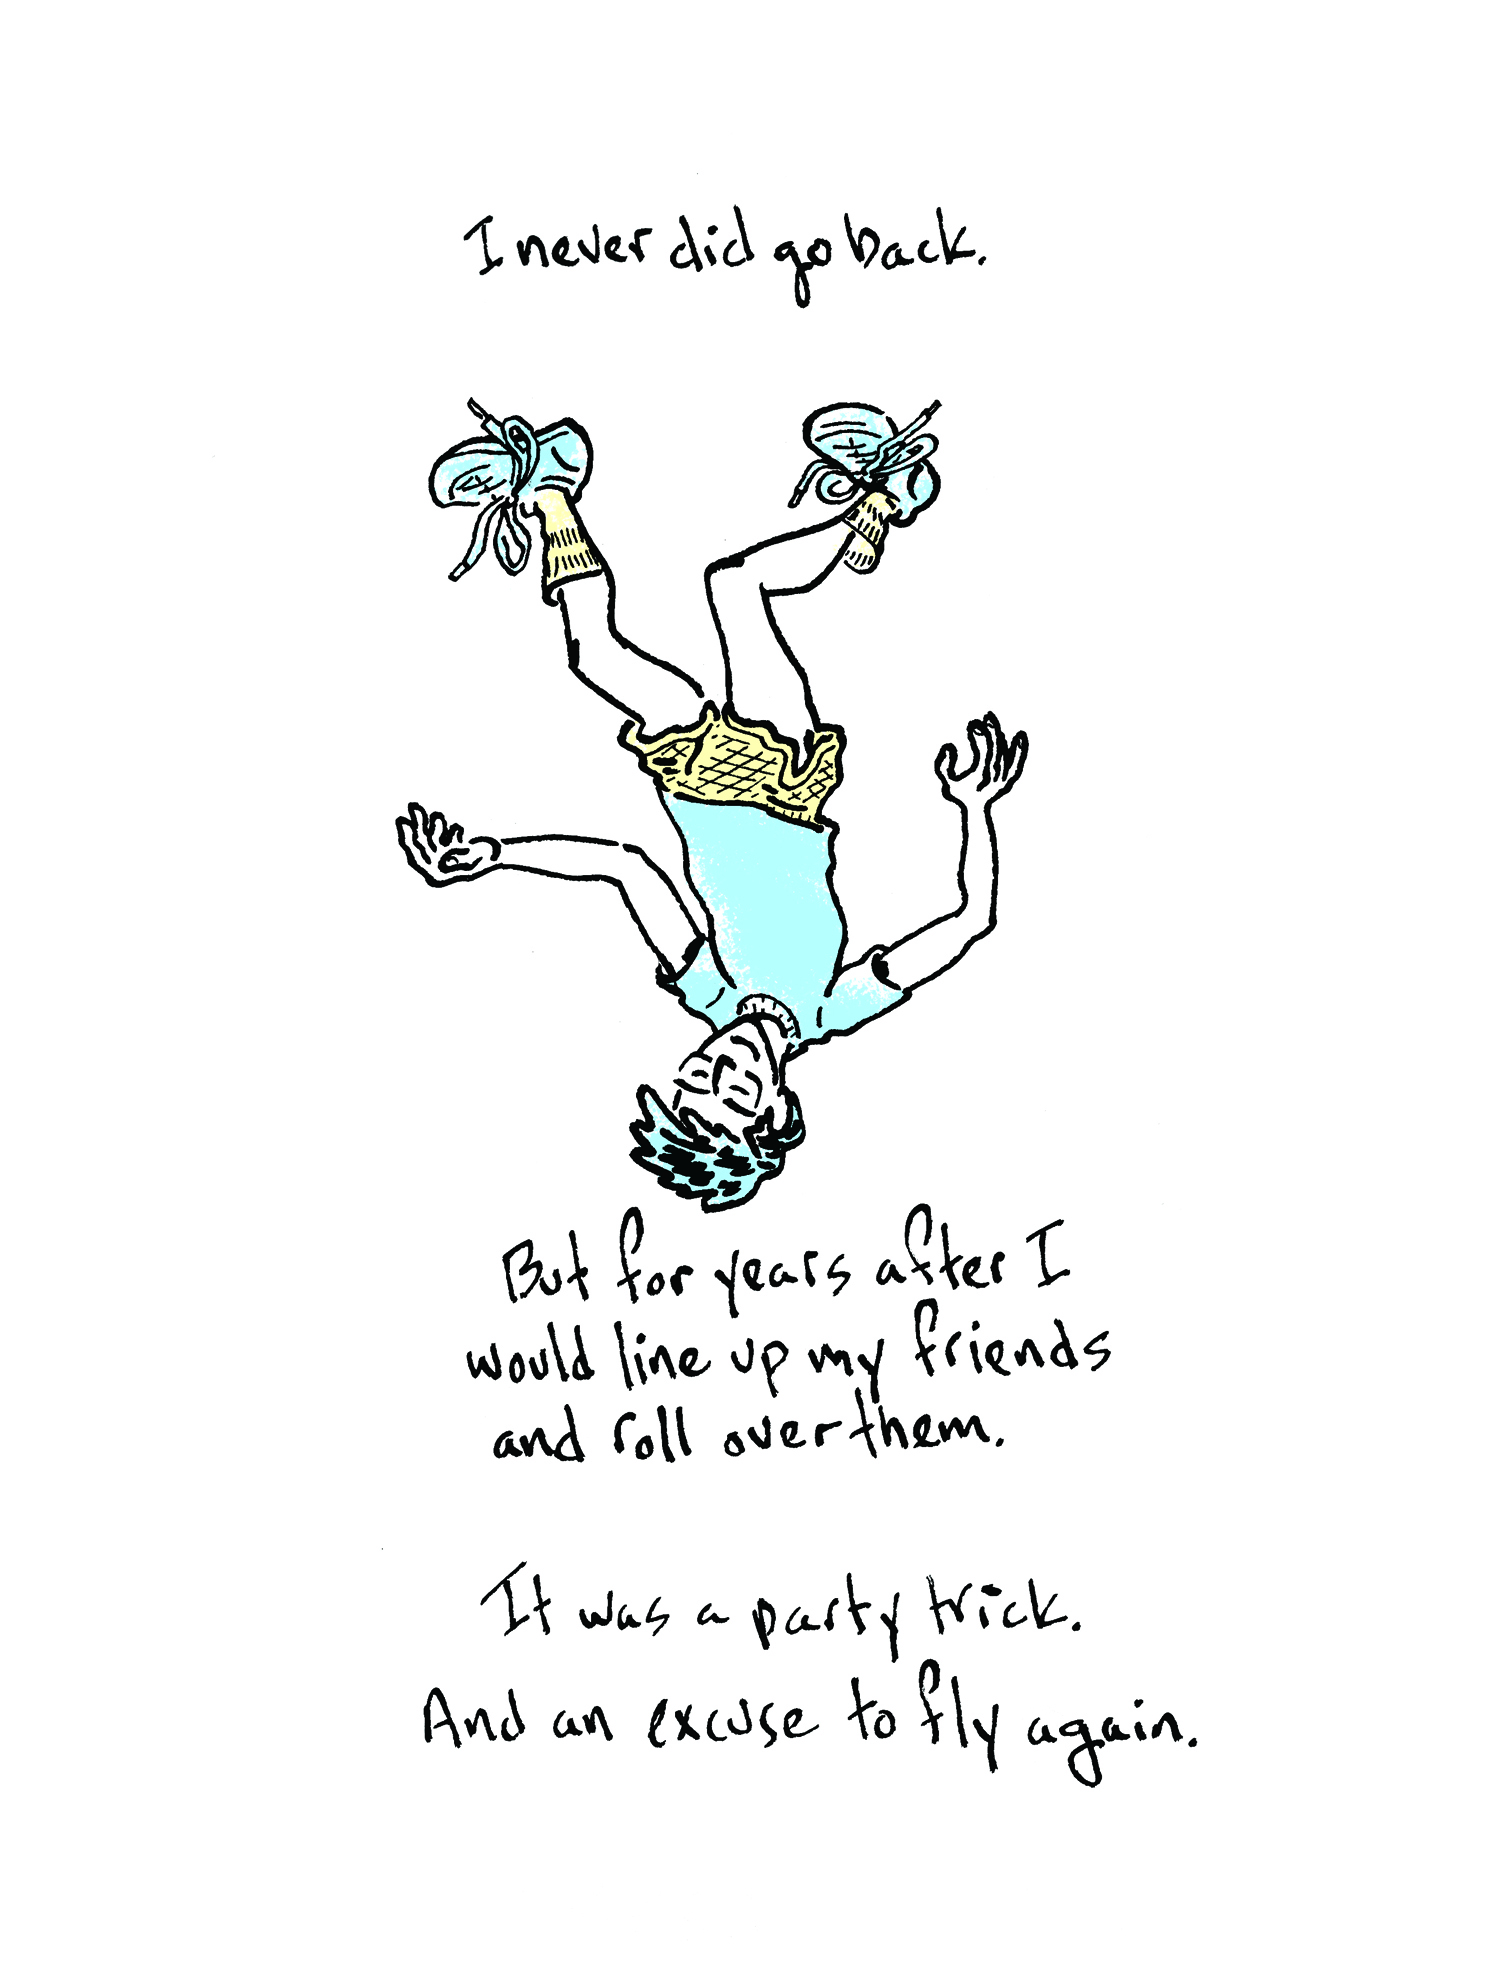 I never did go back.
But for years after I
would line up my friends
and roll over them.
It was a party trick.
And an excuse to fly again.